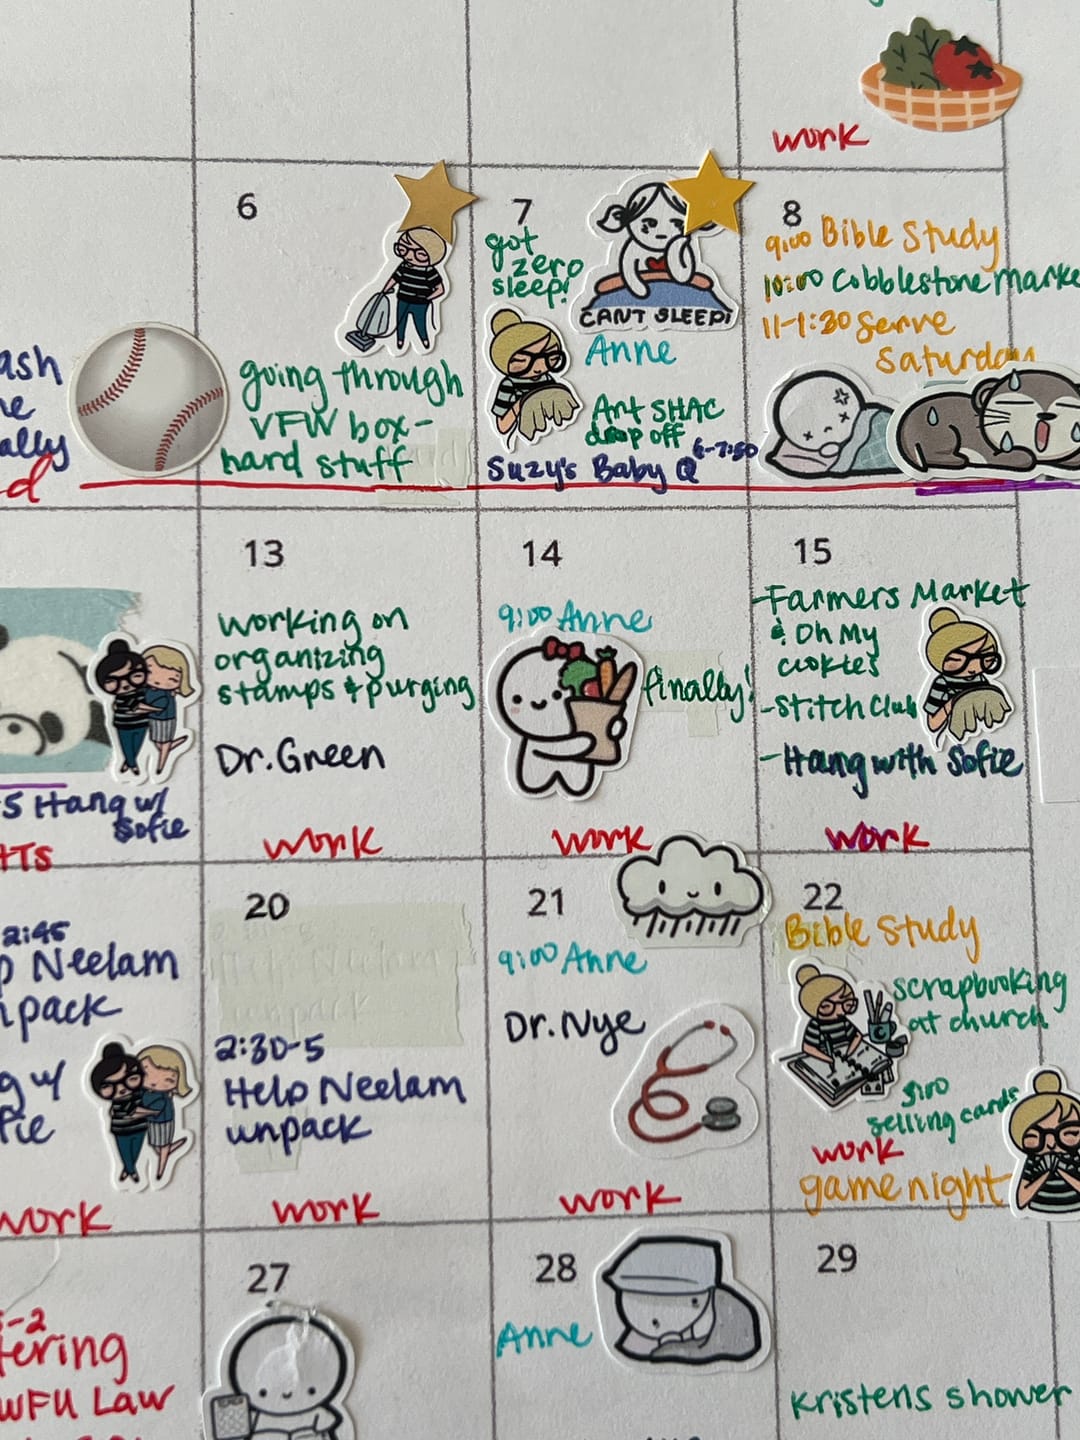 work
6
going through
VFW box-
hard stuff
7
got
zero
sleep!
CAN'T SLEEP!
Anne
Art SHAC
drop off
Suzy's Baby Q 6-7:30
8
9:00 Bible Study
10:00 Cobblestone Marke
11-1:30 Serve
Saturday
ash
ally
13
working on
organizing
stamps & purging
Dr. Green
work
14
9:00 Anne
finally!
work
15
-Farmers Market
& Oh My
cookies
-Stitch Club
-Hang with Sofie
work
5 Hang w/
Sofie
HTS
2:45
p Neelam
npack
g w/
fie
work
20
2:30-5
Help Neelam
unpack
work
21
9:00 Anne
Dr. Nye
work
22
Bible Study
scrapbooking
at church
selling cards
work
game night
-2
tering
WFU Law
27
28
Anne
29
Kristens shower